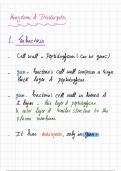 Kingdoms & Domains
1. Eubacteria
- Cell wall = Peptidoglycan (can be gram)
- gram + bacteria's cell wall comprises a huge
thick layer of peptidoglycan.
- gram - bacteria's cell wall is formed of
2 layers - thin layer of peptidoglycan
& outer layer of similar structure to the
plasma membrane.
- It has endospores, only in gram +